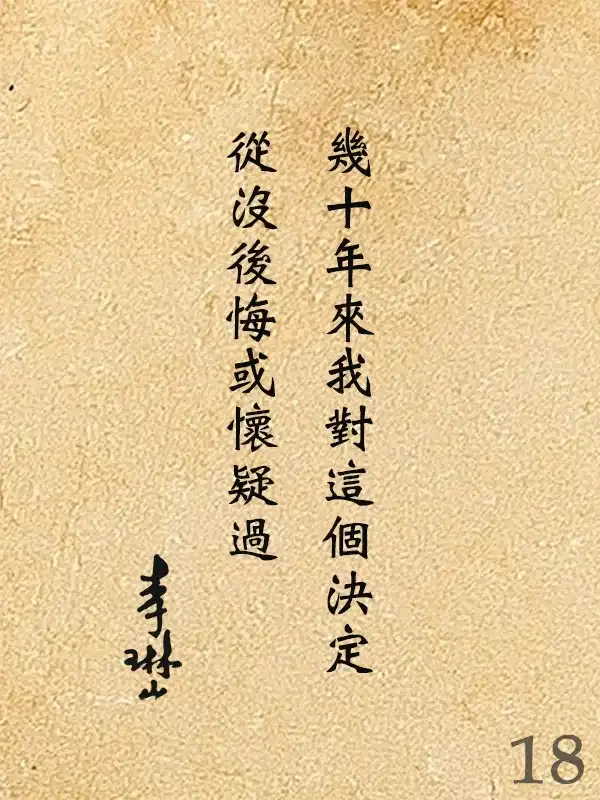 幾十年來我對這個決定
從沒後悔或懷疑過
李琳山
18